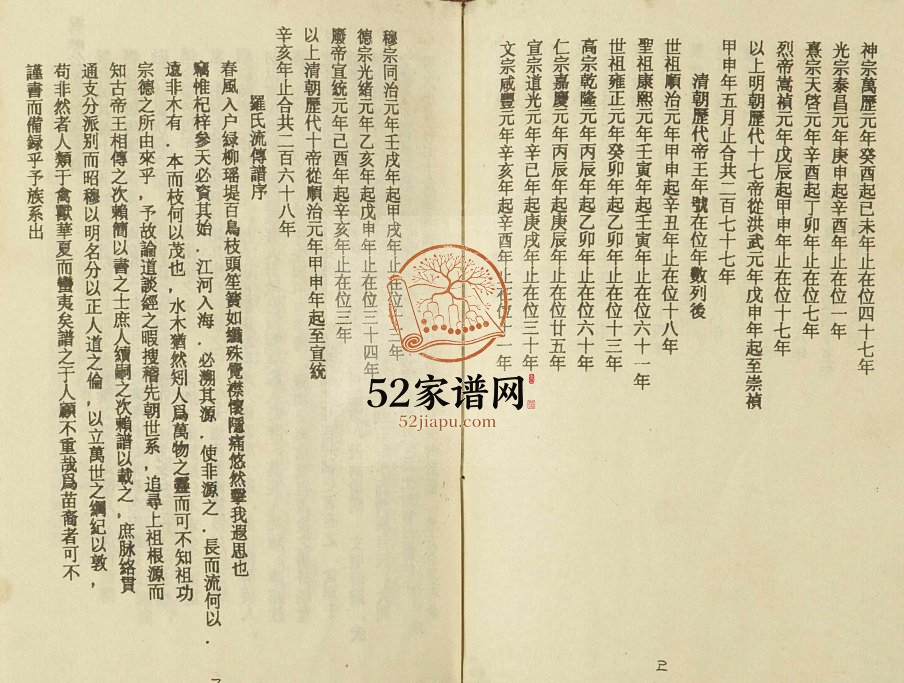 神宗萬歷元年癸酉起已未年止在位四十七年
光宗泰昌元年庚申起辛酉年止在位一年
熹宗天啓元年辛酉起丁卯年止在位七年
烈帝嵩禎元年戊辰起甲申年止在位十七年
以上明朝歷代十七帝從洪武元年戊申年起至崇禎
甲申年五月止合共二百七十七年
清朝歷代帝王年號在位年數列後
世祖順治元年甲申起辛丑年止在位十八年
聖祖康熙元年壬寅年起壬寅年止在位六十一年
世祖雍正元年癸卯年起乙卯年止在位十三年
高宗乾隆元年丙辰年起乙卯年止在位六十年
仁宗嘉慶元年丙辰年起庚辰年止在位廿五年
宣宗道光元年辛巳年起庚戌年止在位三十年
文宗咸豐元年辛亥年起辛酉年止在位十一年
穆宗同治元年壬戌年起甲戌年止在位十三年
德宗光緒元年乙亥年起戊申年止在位三十四年
廢帝宣統元年己酉年起辛亥年止在位三年
以上清朝歷代十帝從順治元年甲申年起至宣統
辛亥年止合共二百六十八年
羅氏流傳譜序
春風入户緑柳瑶堤百鳥枝頭笙簧如纖殊覺襟懷隱痛悠然擊我遐思也
竊惟杞梓參天必資其始．江河入海．必溯其源．使非源之．長而流何以．
遠非木有．本而枝何以茂也，水木猶然矧人爲萬物之靈而可不知祖功
宗德之所由來乎，予故論道談經之暇搜稽先朝世系，追尋上祖根源而
知古帝王相傳之次賴簡以書之士庶人續嗣之次賴譜以載之，庶脉絡貫
通支分派别而昭穆以明名分以正人道之倫，以立萬世之綱紀以敦，
苟非然者人類于禽獸華夏而蠻夷矣譜之于人顧不重哉爲苗裔者可不
謹書而備録乎予族系出
52家谱网
52jiapu.com